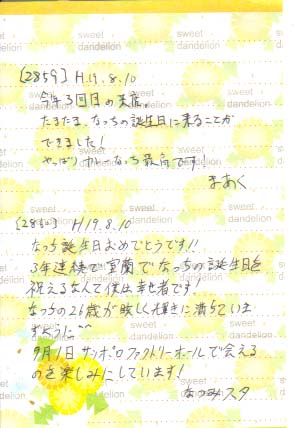 sweet dandelion
[2859] H.19.8.10
今年3回目の支店。
たまたま、なっちの誕生日に来ることが
できました!
やっぱり なっち最高です!
まあく
H19.8.10
なっち誕生日おめでとうです!!
3年連続で室蘭でなっちの誕生日を
祝えるなんて僕は幸せ者です!
なっちの26歳が楽しく輝きに満ちていま
すように^^
9月1日サッポロファクトリーホールで会える
のを楽しみにしています!
なつみスタ